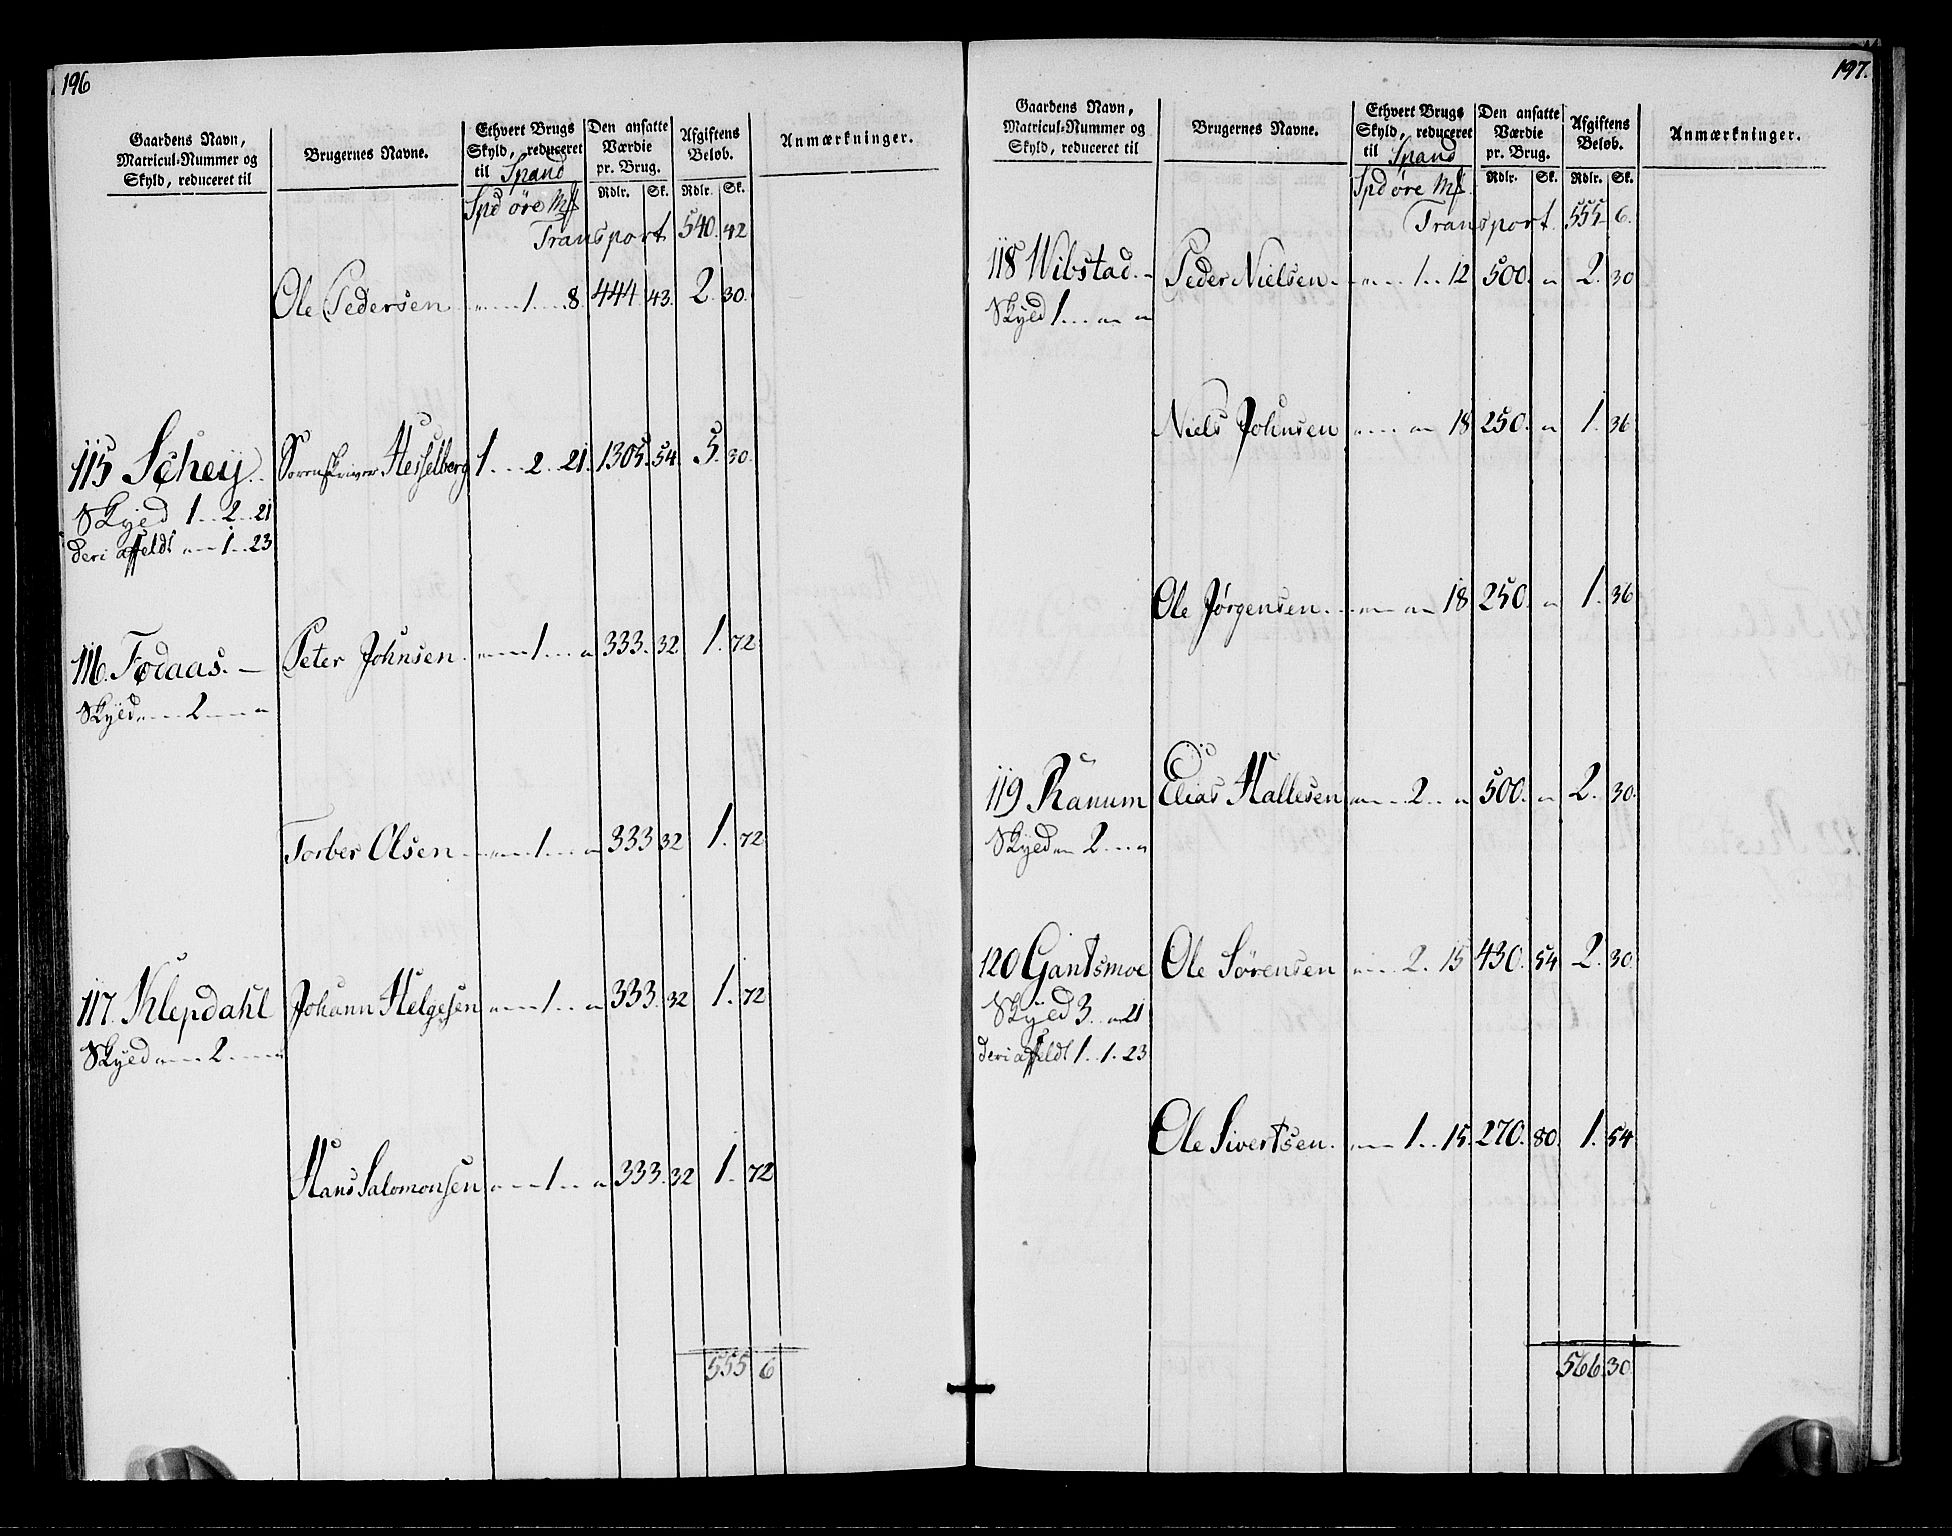 196
Gaardens Navn,
Matricul-Nummer og
Skyld, reduceret til
Brugernes Navne.
Ethvert Brugs
Skyld, reduceret
til Spand
Spd øre Mk
Den ansatte
Værdie
pr. Brug.
Rdlr. Sk.
Afgiftens
Beløb.
Rdlr. Sk.
Anmærkninger.
Transport 540. 42
Ole Pedersen „ 1 8. 444. 43. 2. 30.
115 Schey. Sorenskriver Hesselberg 1 2 21. 1305. 54. 5. 30.
Skyld 1 2 21
deri affeldt „ 1 23
116. Fodaas. Peter Johnsen. „ 1 „ 333. 32 1. 72
Skyld „ 2 „
Torber Olsen „ 1 „ 333 32 1. 72
117. Klepdahl Johann Helgesen „ 1 „ 333. 32 1. 72
Skyld „ 2 „
Hans Salomonsen „ 1 „ 333. 32 1. 72
555 6
197.
Gaardens Navn,
Matricul-Nummer og
Skyld, reduceret til
Brugernes Navne.
Ethvert Brugs
Skyld, reduceret
til Spand
Spd øre Mk
Den ansatte
Værdie
pr. Brug.
Rdlr. Sk.
Afgiftens
Beløb.
Rdlr. Sk.
Anmærkninger.
Transport 555 6.
118 Wibstad. Peder Nielsen. „ 1 12 500. „ 2. 30
Skyld 1 „ „
Niels Johnsen „ „ 18 250. „ 1. 36
Ole Jørgensen. „ „ 18 250. „ 1. 36
119 Ranum Elias Hallesen „ 2 „ 500. „ 2. 30.
Skyld „ 2 „
120 Gantsmoe Ole Sørensen „ 2. 15 430. 54 2. 30
Skyld 3 „ 21
deri affeldt 1 1. 23
Ole Sivertsen. „ 1 15. 270. 80. 1. 54
566. 30